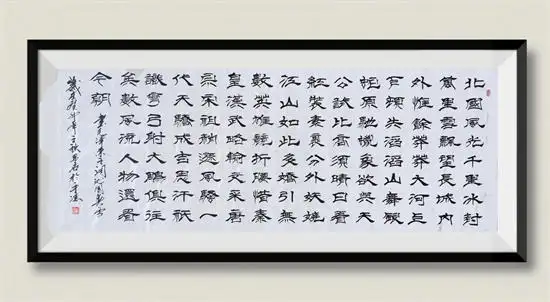 北國風光千里冰封
萬里雪飄望長城內
外惟餘莽莽大河上
下頓失滔滔山舞銀
蛇原馳蠟象欲與天
公試比高須晴日看
紅裝素裹分外妖嬈
江山如此多嬌引無
數英雄競折腰惜秦
皇漢武略輸文采唐
宗宋祖稍遜風騷一
代天驕成吉思汗祇
識彎弓射大鵰俱往
矣數風流人物還看
今朝 書毛澤東詞沁園春雪
歲在癸卯年之秋